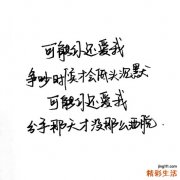 可能你还爱我
争吵时候才会低头沉默
可能你还爱我
分手那天才没那么洒脱.
jingtfh.com
精彩生活